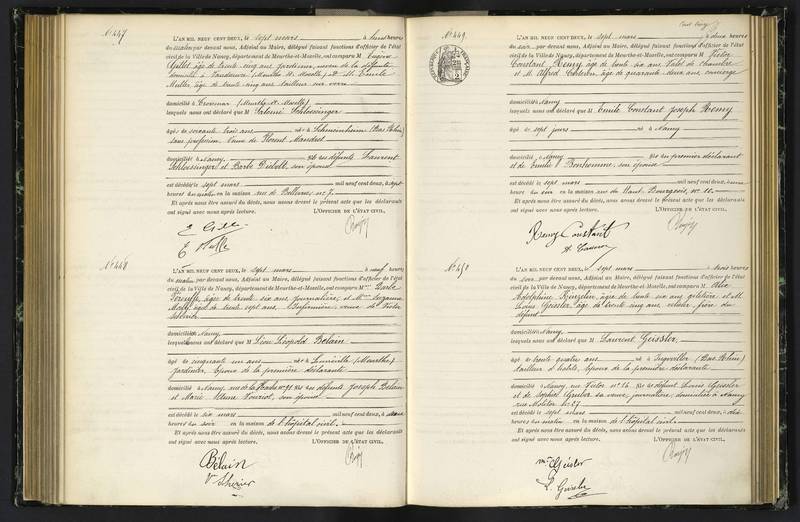 N° 447
L'AN MIL NEUF CENT DEUX, le sept mars à heures
du matin par devant nous, Adjoint au Maire, délégué faisant fonctions d'officier de l'état
civil de la Ville de Nancy, département de Meurthe-et-Moselle, ont comparu M Eugène
âgé de trente cinq ans jardinier, neveu de la défunte
domicilié à Vandoeuvre (Meurthe et Moselle) et M. Emile
Muller, âgé de trente cinq ans, tailleur sur verre
domicilié à Croismare (Meurthe et Moselle)
lesquels nous ont déclaré que M Salomé Schleissinger
âgée de soixante trois ans née à (Bas Rhin)
sans profession, Veuve de Florent Mandrel
domiciliée à Nancy, fille des défunts Laurent
Schleissinger et Barbe Diebolt, son épouse
est décédée le sept mars mil neuf cent deux, à sept
heures du matin en la maison rue de Bellevue, n° 7.
Et après nous être assuré du décès, nous avons dressé le présent acte que les déclarants
ont signé avec nous après lecture. L'OFFICIER DE L'ÉTAT CIVIL,
N° 448
L'AN MIL NEUF CENT DEUX, le sept mars à neuf heures
du matin par devant nous, Adjoint au Maire, délégué faisant fonctions d'officier de l'état
civil de la Ville de Nancy, département de Meurthe-et-Moselle, ont comparu Mme Barbe
âgée de trente six ans, journalière, et Mme Suzanne
âgée de trente sept ans, Infirmière, veuve de Victor
domiciliées à Nancy
lesquelles nous ont déclaré que M Léon Léopold Belain
âgé de cinquante un ans né à Lunéville (Meurthe)
jardinier, époux de la première déclarante
domicilié à Nancy, rue de fils des défunts Joseph Belain
et Marie son épouse
est décédé le six mars mil neuf cent deux, à onze
heures du soir en la maison de l'hôpital civil.
Et après nous être assuré du décès, nous avons dressé le présent acte que les déclarants
ont signé avec nous après lecture. L'OFFICIER DE L'ÉTAT CIVIL,
Belain
N° 449
L'AN MIL NEUF CENT DEUX, le sept mars à deux heures
du soir par devant nous, Adjoint au Maire, délégué faisant fonctions d'officier de l'état
civil de la Ville de Nancy, département de Meurthe-et-Moselle, ont comparu M Victor
Constant Remy, âgé de trente six ans Valet de chambre
et M. Alfred âgé de quarante deux ans, concierge
domiciliés à Nancy
lesquels nous ont déclaré que M Emile Constant Joseph Remy
âgé de sept jours né à Nancy
domicilié à Nancy fils du premier déclarant
et de Emilie Bonhomme, son épouse
est décédé le sept mars mil neuf cent deux, à une
heure du soir en la maison rue du Haut Bourgeois, n°
Et après nous être assuré du décès, nous avons dressé le présent acte que les déclarants
ont signé avec nous après lecture. L'OFFICIER DE L'ÉTAT CIVIL,
Remy Constant
N° 450
L'AN MIL NEUF CENT DEUX, le sept mars à trois heures
du soir par devant nous, Adjoint au Maire, délégué faisant fonctions d'officier de l'état
civil de la Ville de Nancy, département de Meurthe-et-Moselle, ont comparu M
Adolphine âgée de trente six ans giletière et M.
Louis Geissler, âgé de trente cinq ans, frère du
défunt
domiciliés à Nancy
lesquels nous ont déclaré que M Laurent Geissler,
âgé de trente quatre ans né à Ingwiller (Bas Rhin)
tailleur d'habits, époux de la première déclarante
domicilié à Nancy, rue n° 14 fils du défunt Louis Geissler
et de Sophie Gruber sa veuve, journalière, domiciliée à Nancy
rue Molitor n° 27
est décédé le sept mars mil neuf cent deux, à dix
heures du matin en la maison de l'hôpital civil.
Et après nous être assuré du décès, nous avons dressé le présent acte que les déclarants
ont signé avec nous après lecture. L'OFFICIER DE L'ÉTAT CIVIL,
L. Geissler